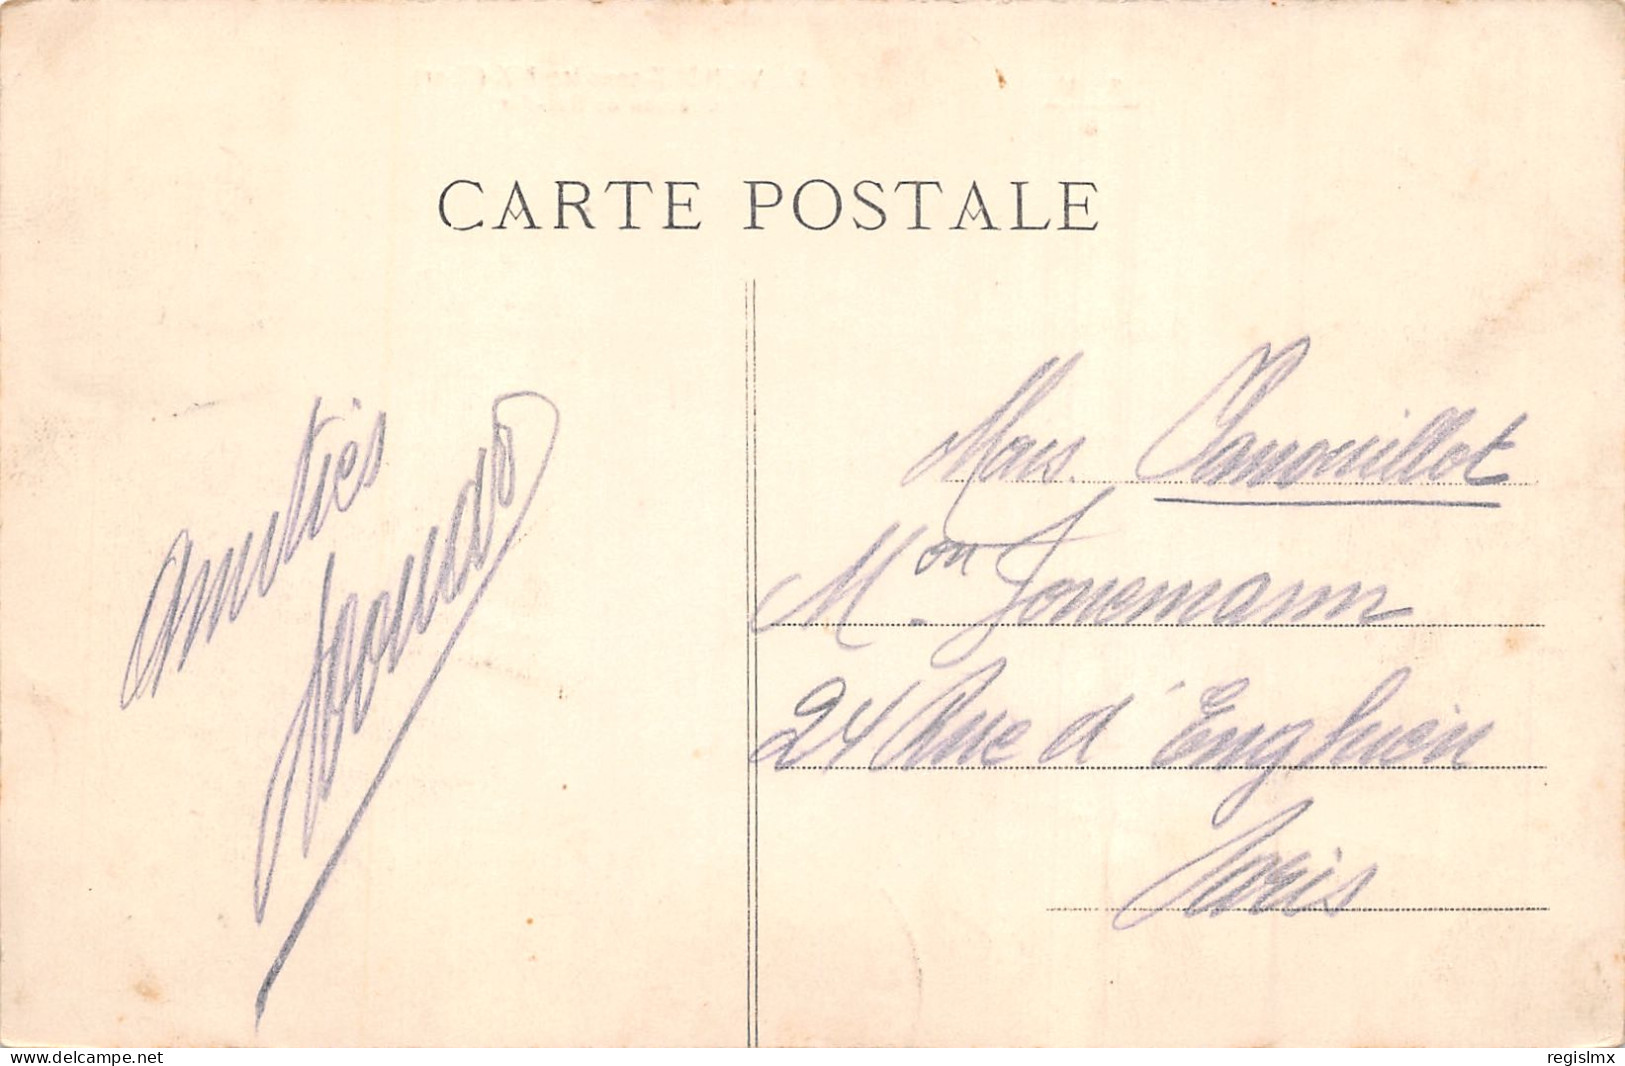 CARTE POSTALE
Amitiés
Mons. Canouillot
Mon. Jouemann
24 Rue d'Enghien
Paris
www.delcampe.net
regislmx